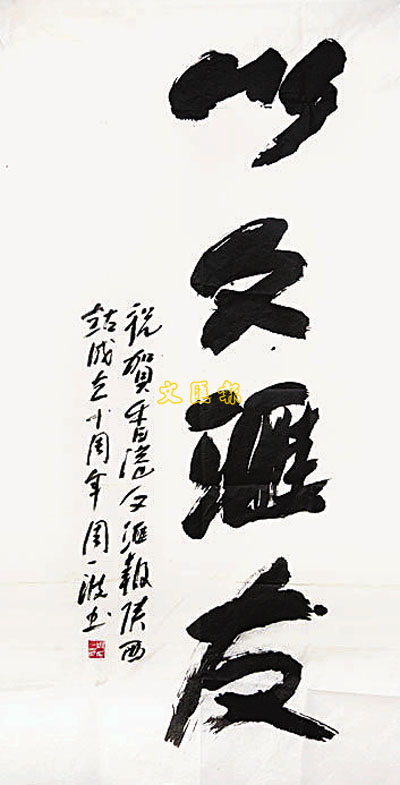 以文滙友
祝賀香港文滙報陝西
站成立十周年周一波書
文匯報